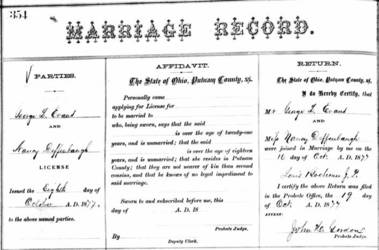 354
MARRIAGE RECORD.
PARTIES.
George L. Evans
AND
Nancy Deffenbaugh
LICENSE
Issued the Eighth day of
October A. D. 1877,
to the above named parties.
AFFIDAVIT.
The State of Ohio, Putnam County, ss.
Personally came
applying for License for
to be married to
who, being sworn, says that the said
is over the age of twenty-one
years, and is unmarried; that the said
is over the age of eighteen
years, and is unmarried; that she resides in Putnam
County; that they are not nearer of kin than second
cousins, and that he knows of no legal impediment to
said marriage.
Sworn to and subscribed before me, this
day of A. D. 18
Probate Judge.
By
Deputy Clerk.
RETURN.
The State of Ohio, Putnam County, ss.
I do Hereby Certify, that
Mr George L. Evans
and
Nancy Deffenbaugh
were joined in Marriage by me on the
day of Oct. A. D. 1877
Louis J. P.
I certify the above Return was filed
in the Probate Office, the 19 day
of Oct A. D. 1877
ATTEST:
John H. Gordon
Probate Judge.